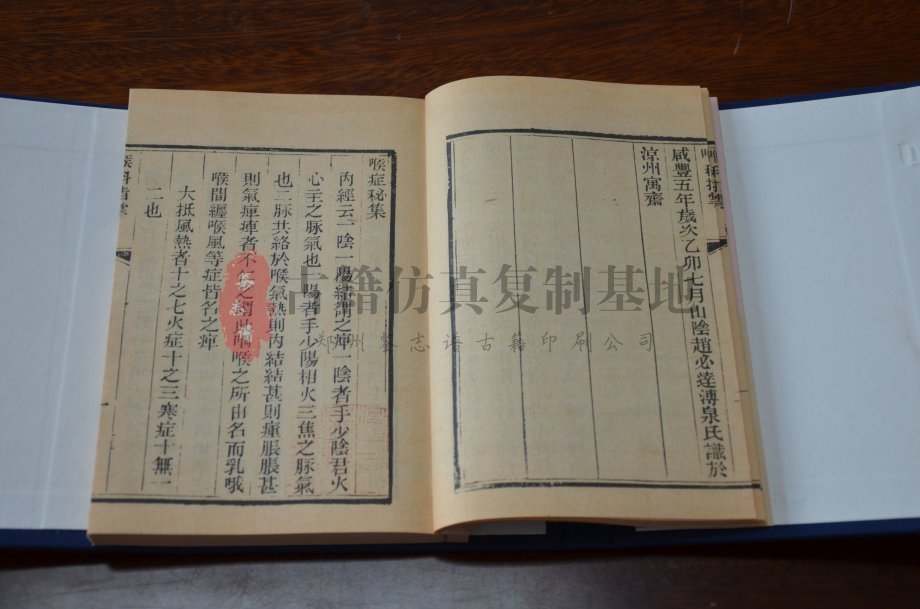 喉科指掌
咸豐五年歲次乙卯七月山陰趙必達溥泉氏識於
涼州寓齋
喉症秘集
內經云一陰一陽結謂之痺一陰者手少陰君火
心主之脉氣也一陽者手少陽相火三焦之脉氣
也二脉共絡於喉氣熱則內結結甚則瘇脹脹甚
則氣痺痺者不仁之謂此咽喉之所由名而乳哦
喉間纏喉風等症皆名之痺
大抵風熱者十之七火症十之三寒症十無一
二也
喉科指掌
古籍仿真复制基地
郑州鉴志谱古籍印刷公司